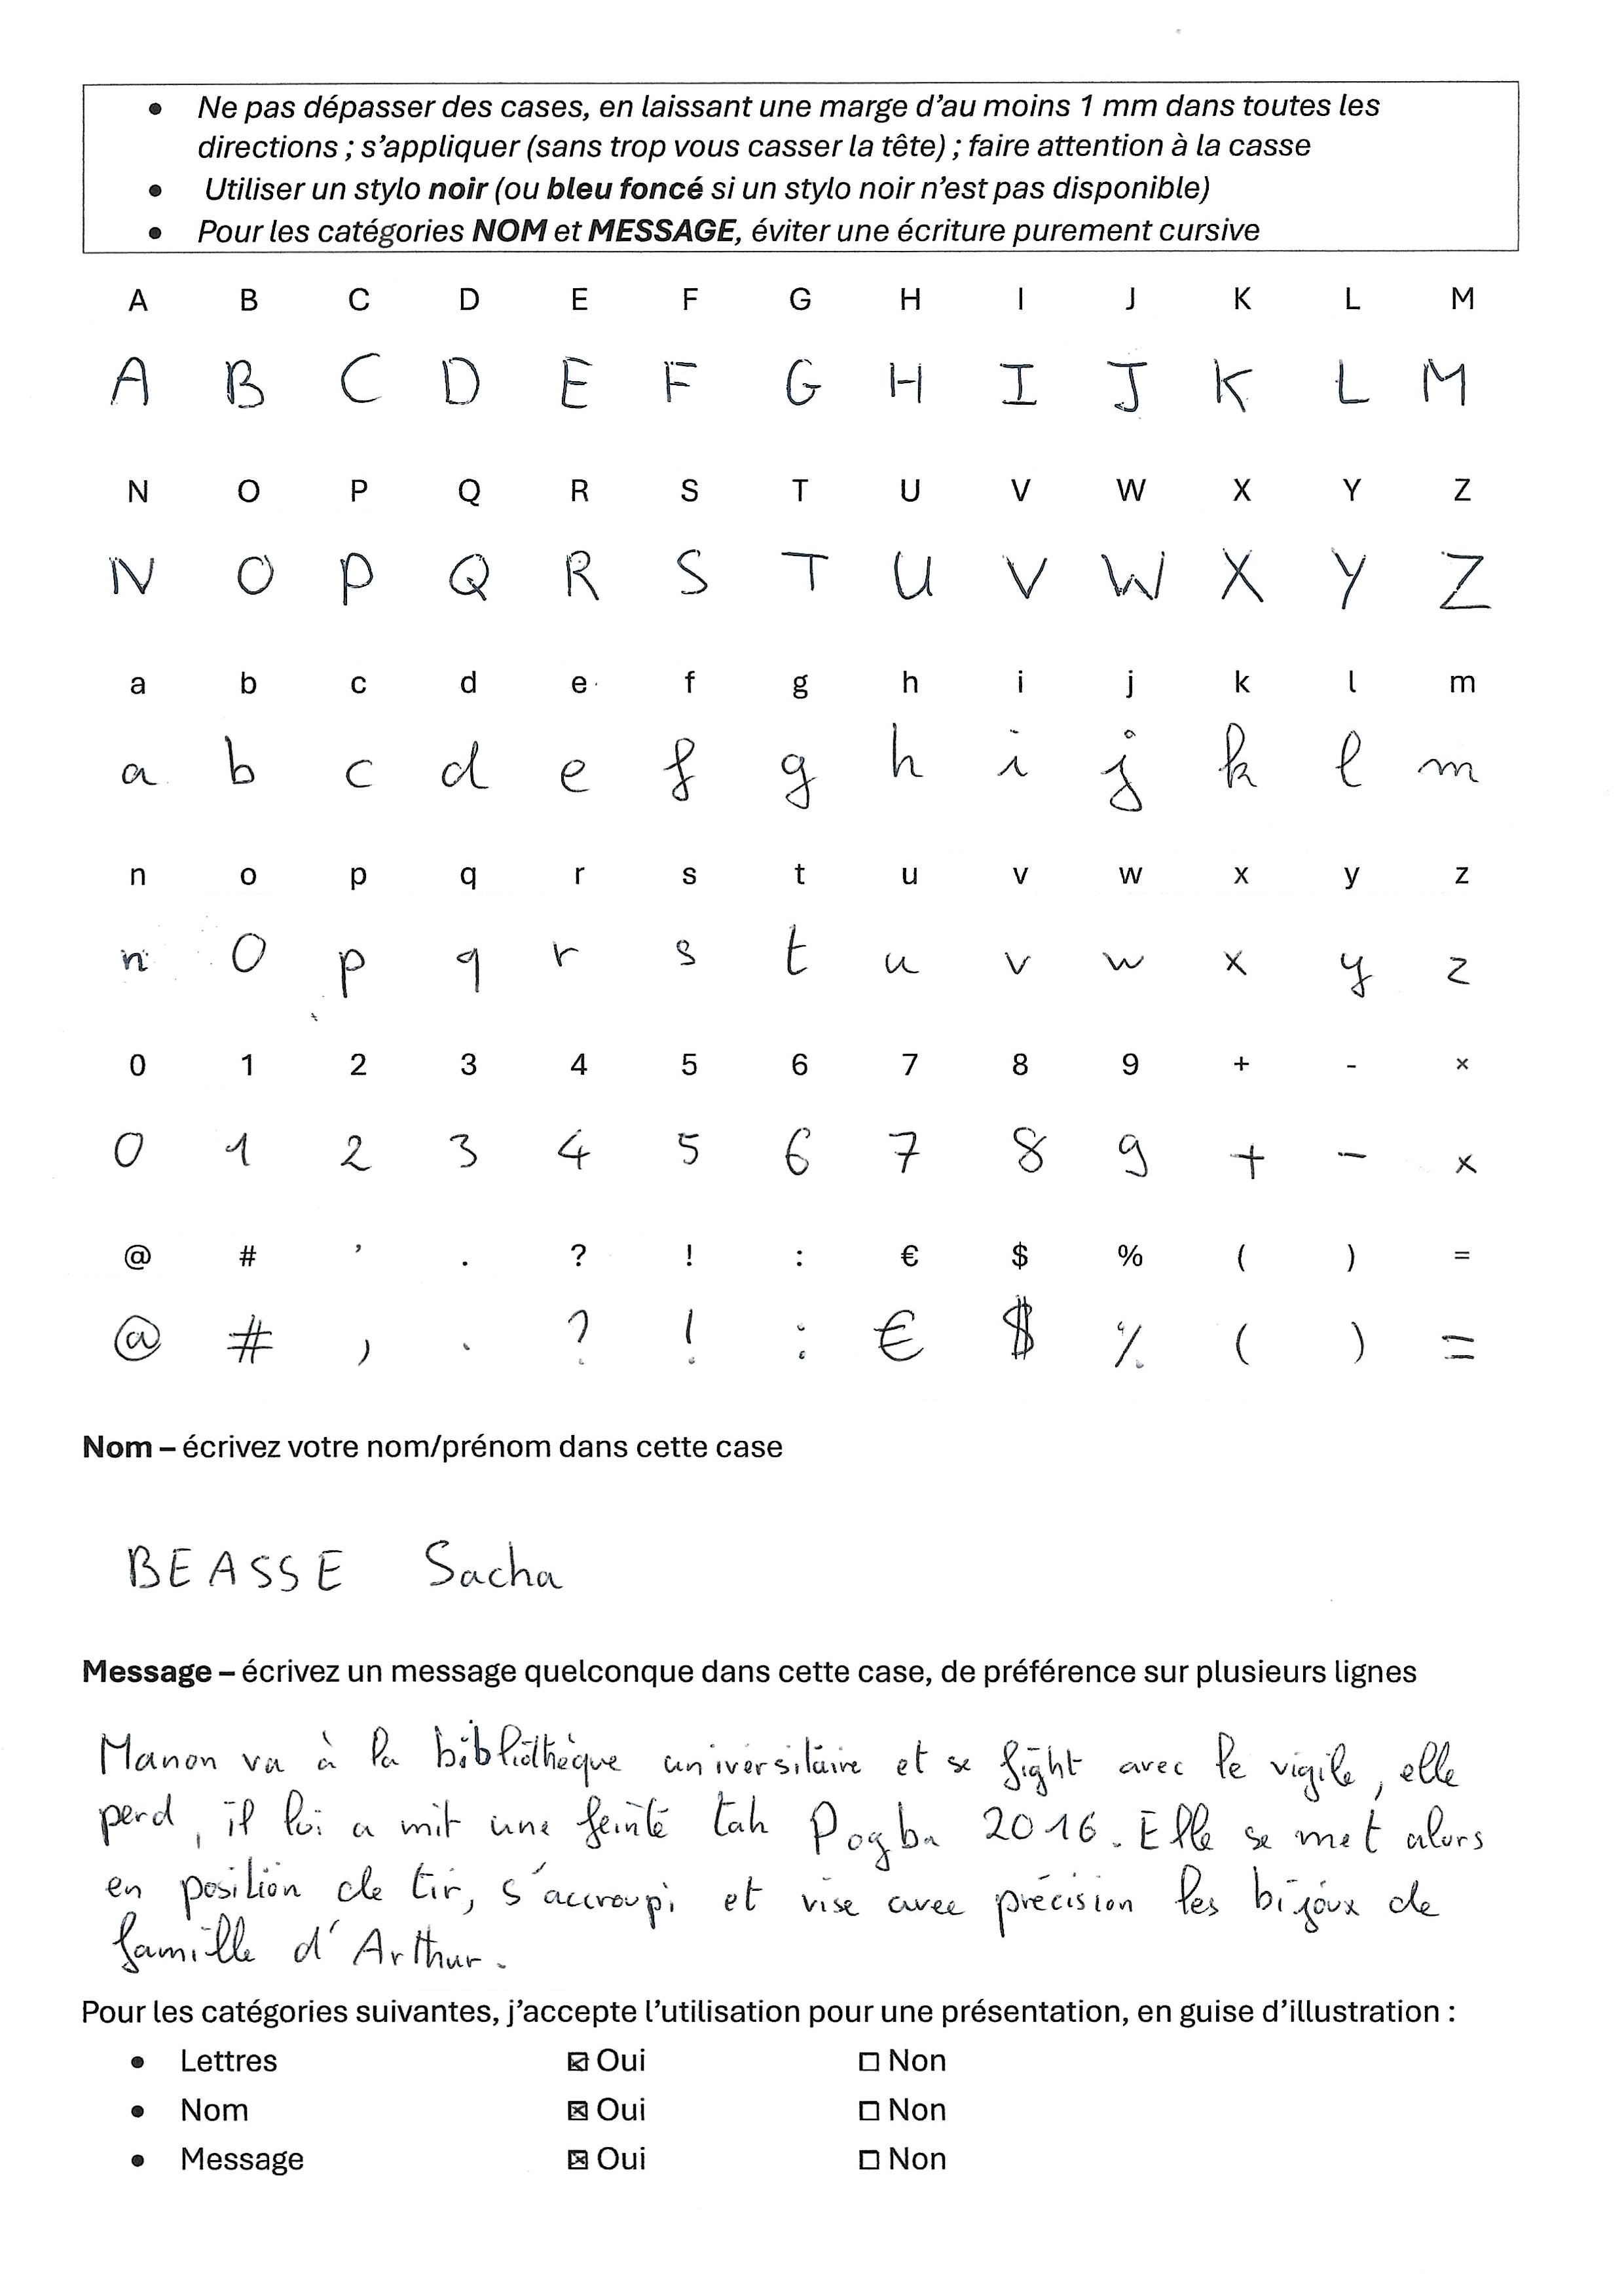 • Ne pas dépasser des cases, en laissant une marge d’au moins 1 mm dans toutes les
directions ; s’appliquer (sans trop vous casser la tête) ; faire attention à la casse
• Utiliser un stylo noir (ou bleu foncé si un stylo noir n’est pas disponible)
• Pour les catégories NOM et MESSAGE, éviter une écriture purement cursive
A B C D E F G H I J K L M
A B C D E F G H I J K L M
N O P Q R S T U V W X Y Z
N O P Q R S T U V W X Y Z
a b c d e f g h i j k l m
a b c d e f g h i j k l m
n o p q r s t u v w x y z
n o p q r s t u v w x y z
0 1 2 3 4 5 6 7 8 9 + - ×
0 1 2 3 4 5 6 7 8 9 + - ×
@ # ’ . ? ! : € $ % ( ) =
@ # , . ? ! : € $ % ( ) =
Nom – écrivez votre nom/prénom dans cette case
BEASSE Sacha
Message – écrivez un message quelconque dans cette case, de préférence sur plusieurs lignes
Manon va à la bibliothèque universitaire et se fight avec le vigile, elle
perd, il lui a mit une feinte tah Pogba 2016. Elle se met alors
en position de tir, s'accroupi et vise avec précision les bijoux de
famille d'Arthur.
Pour les catégories suivantes, j’accepte l’utilisation pour une présentation, en guise d’illustration :
• Lettres ☒ Oui ☐ Non
• Nom ☒ Oui ☐ Non
• Message ☒ Oui ☐ Non